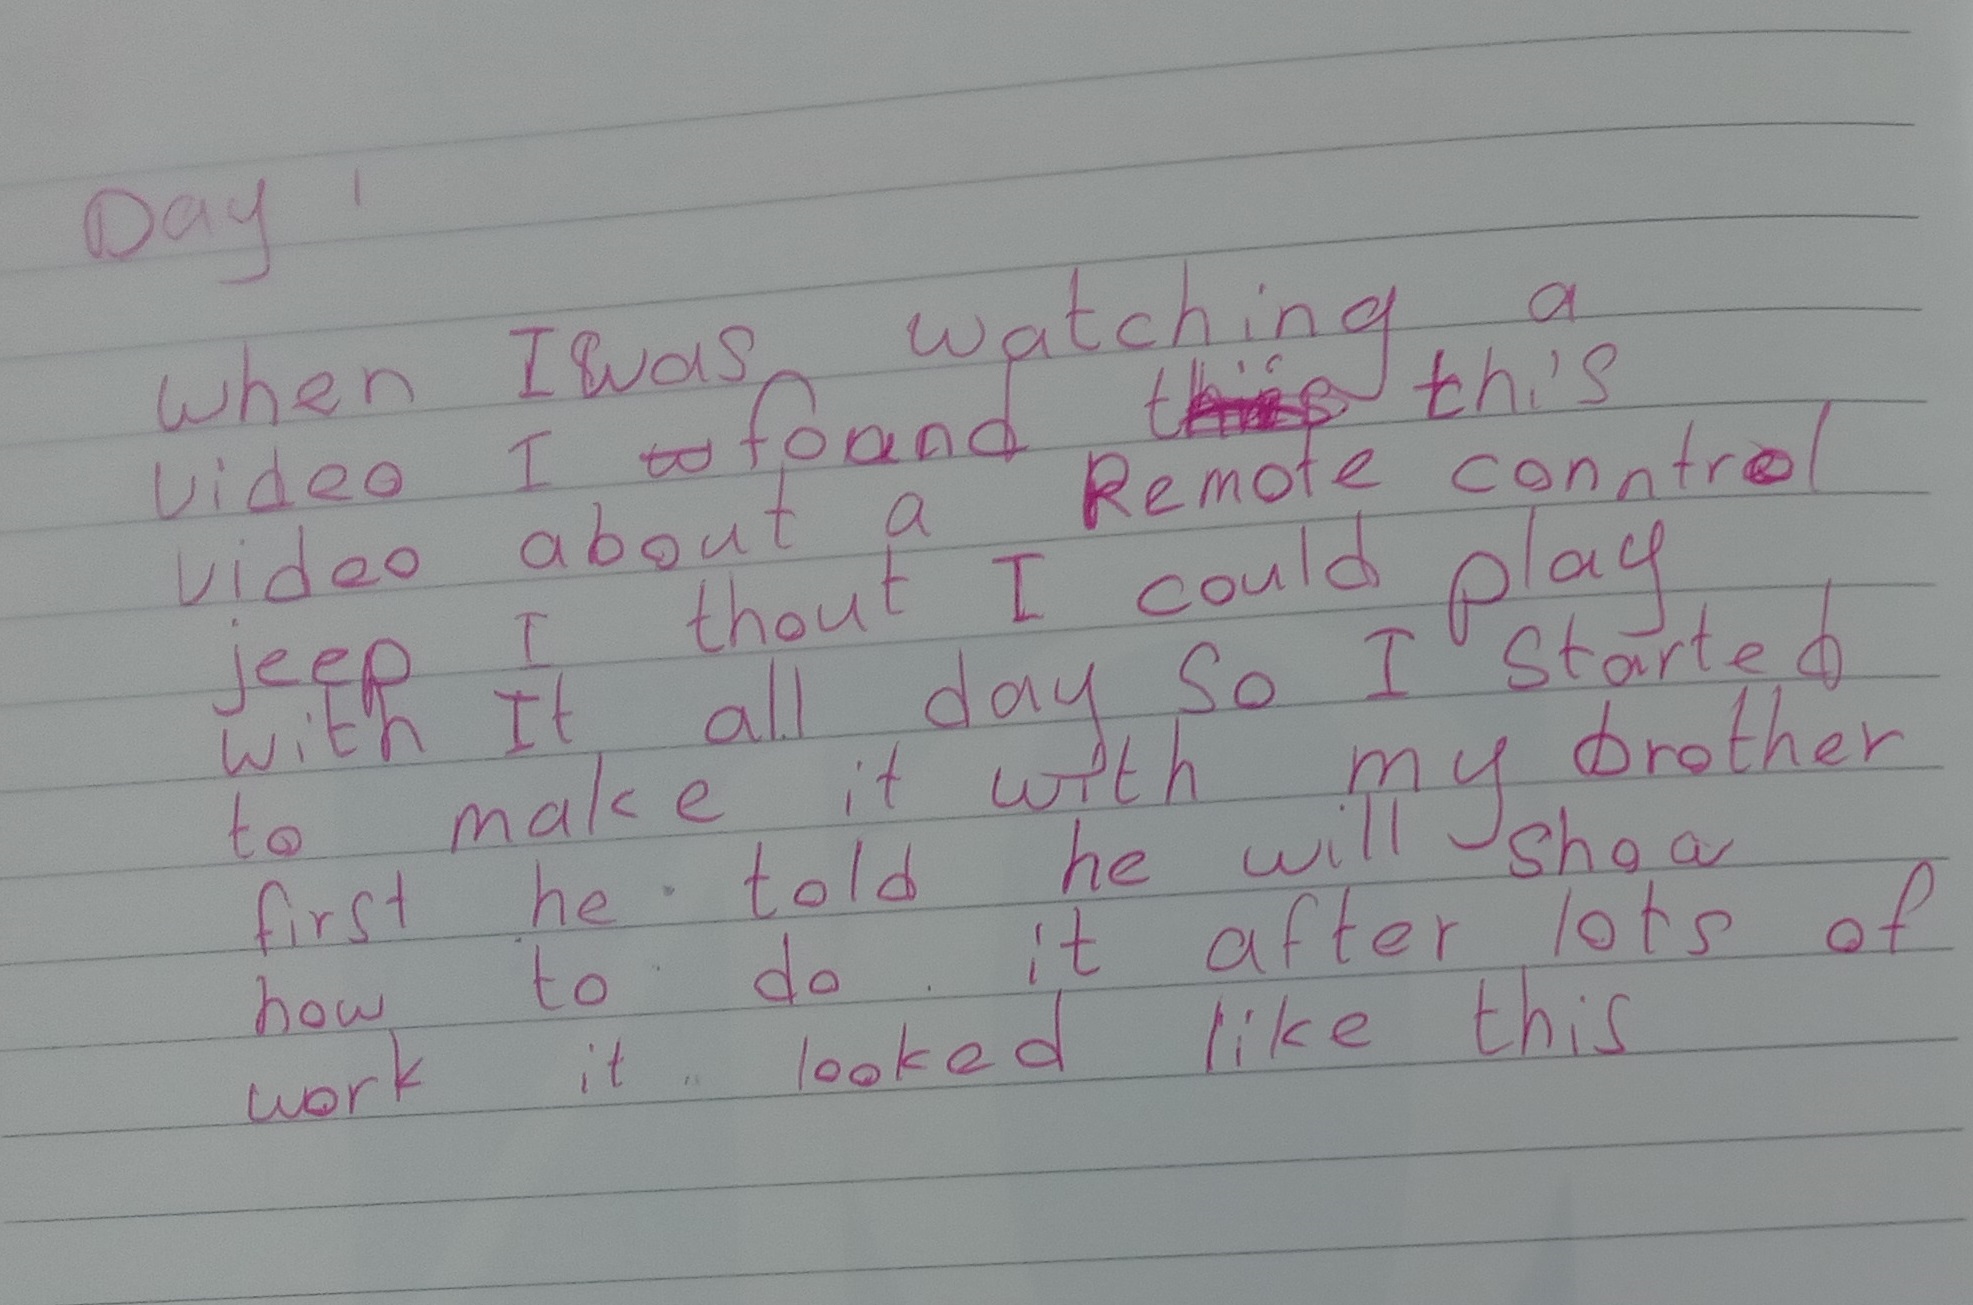 Day 1
when I was watching a
video I found this
video about a Remote conntrol
jeep I thout I could play
with It all day So I Started
to make it with my brother
first he told he will shoa
how to do it after lots of
work it looked like this